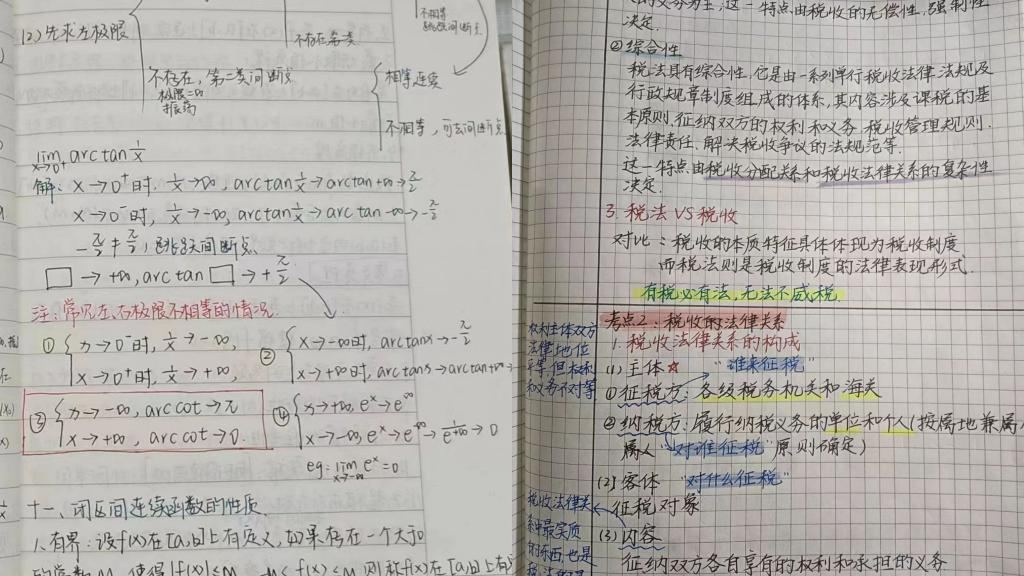 (2)先求左极限
不存在,第二类间断点
极限=∞
振荡
相等连续
不相等,可去间断点
不相等
跳跃间断点
lim x→0 arctan 1/x
解:x→0⁺时,1/x→∞,arctan 1/x→arctan+∞→π/2
x→0⁻时,1/x→-∞,arctan 1/x→arctan-∞→-π/2
-π/2≠π/2,跳跃间断点
□→+∞,arctan□→+π/2
注:常见左、右极限不相等的情况
① x→0⁻时,1/x→-∞,
x→0⁺时,1/x→+∞,
② x→-∞时,arctanx→-π/2
x→+∞时,arctanx→arctan+∞→
③ x→-∞,arccot→π
x→+∞,arccot→0.
④ x→+∞,eˣ→e^∞
x→-∞,eˣ→e^-∞→1/e^+∞→0
eg:lim x→-∞ eˣ=0
十一、闭区间连续函数的性质
1.有界:设f(x)在[a,b]上有定义,如果存在一个大于0
的常数M,使得|f(x)|≤M,-M≤f(x)≤M则称f(x)在[a,b]上有
的义务为主,这一特点由税收的无偿性,强制性
决定.
②综合性
税法具有综合性,它是由一系列单行税收法律法规及
行政规章制度组成的体系,其内容涉及课税的基
本原则,征纳双方的权利和义务 税收管理规则.
法律责任.解决税收争议的法规范等.
这一特点由税收分配关系和税收法律关系的复杂性
决定.
3.税法VS税收
对比:税收的本质特征具体体现为税收制度
而税法则是税收制度的法律表现形式.
有税必有法,无法不成税
考点2:税收的法律关系
1.税收法律关系的构成
(1)主体☆ "谁来征税"
①征税方:各级税务机关和海关
②纳税方:履行纳税义务的单位和个人(按属地兼属
属人"对谁征税"原则确定)
(2)客体 "对什么征税"
征税对象
(3)内容
征纳双方各自享有的权利和承担的义务
权利主体双方
法律地位
平等,但权利
和义务不对等
税收法律关
系中最实质
的东西,也是